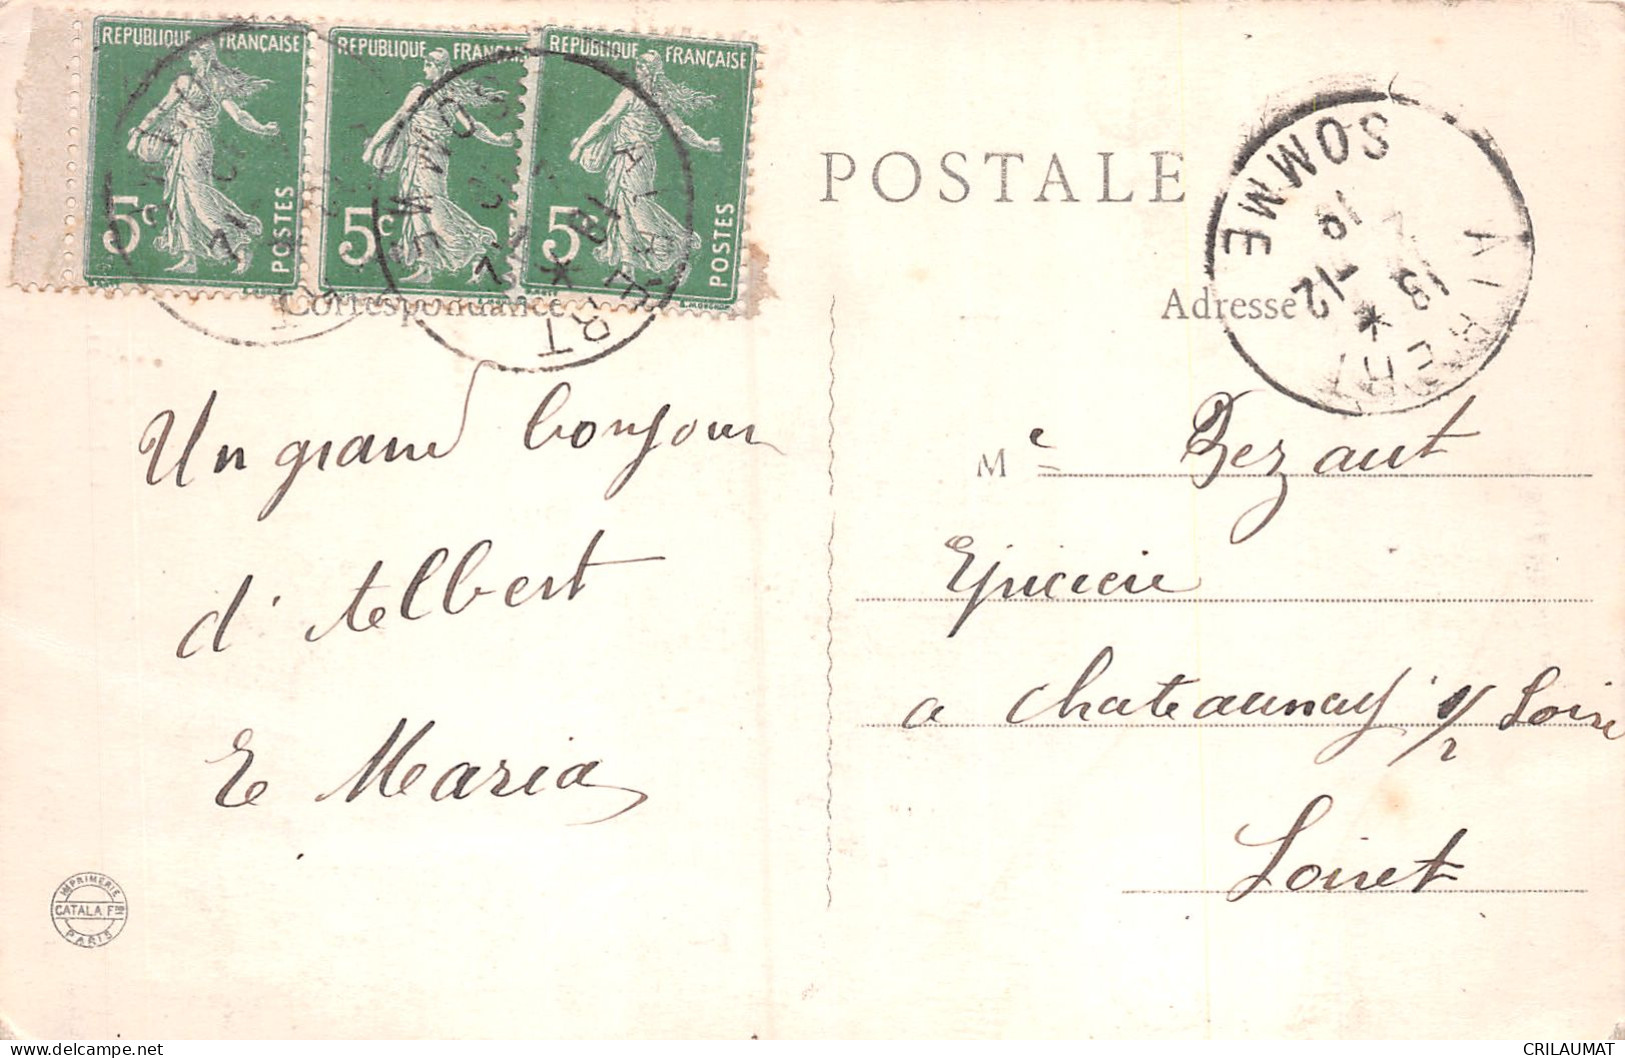 REPUBLIQUE FRANÇAISE
5c POSTES
REPUBLIQUE FRANÇAISE
5c
REPUBLIQUE FRANÇAISE
5c POSTES
ALBERT
SOMME
POSTALE
ALBERT
SOMME
19 -12
19
Correspondance
Adresse
Un grand bonjour
d'Albert
Et Maria
Me Bezaut
Epicerie
a Chateaunay s/ Loire
Loiret
IMPRIMERIE
CATALA Fres
PARIS
CRILAUMAT